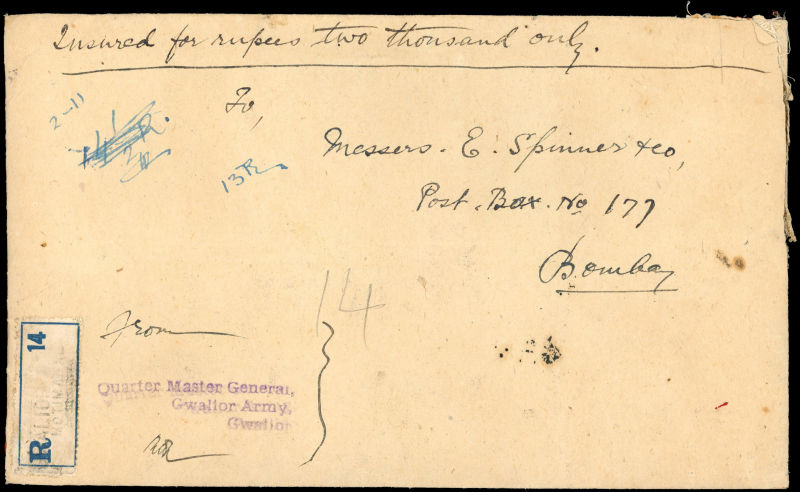 Insured for rupees two thousand only.
2-11
To,
13R.
Messers. E. Spinner & co,
Post. Box. No 177
Bombay
14
From
R 14
Quarter Master General,
Gwalior Army,
Gwalior